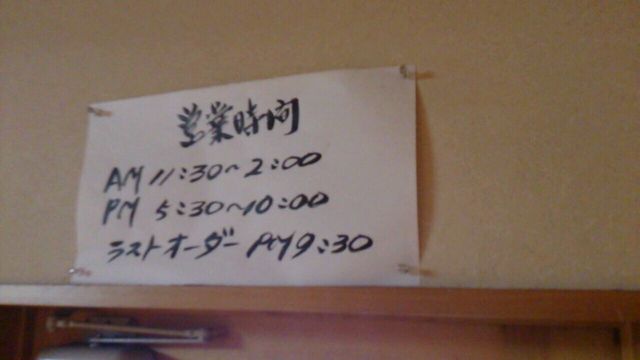 営業時間
AM 11:30~2:00
PM 5:30~10:00
ラストオーダー PM9:30